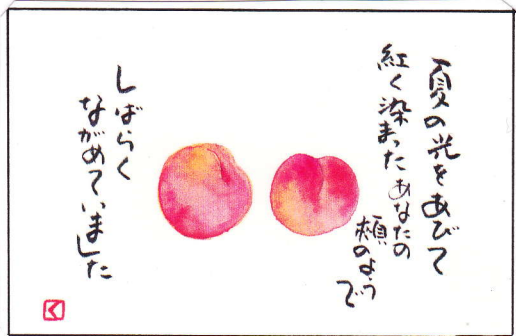 夏の光をあびて
紅く染まったあなたの
頬のようで
しばらく
ながめていました
く